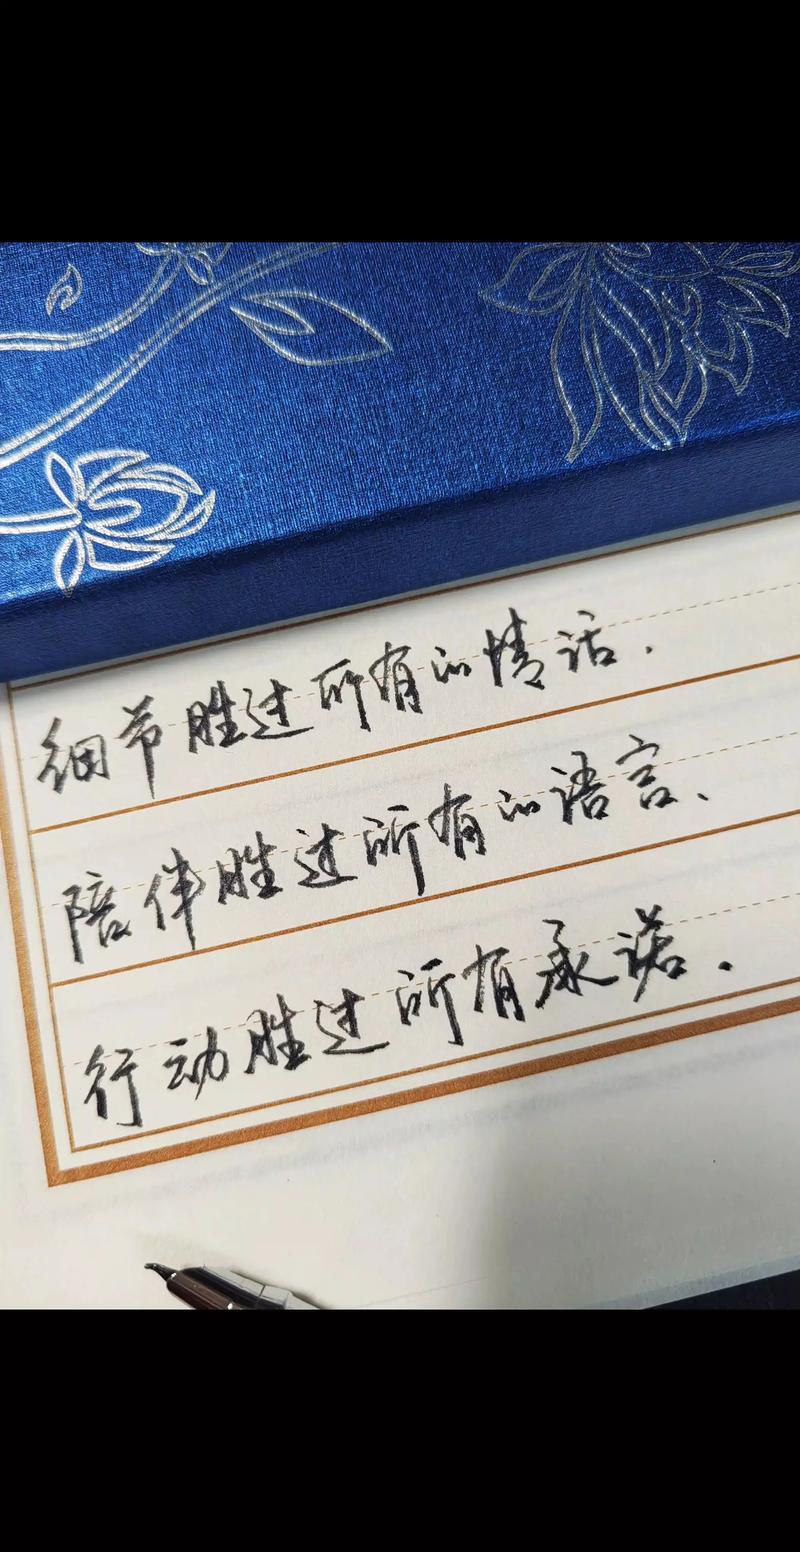 细节胜过所有的情话.
陪伴胜过所有的语言、
行动胜过所有承诺.